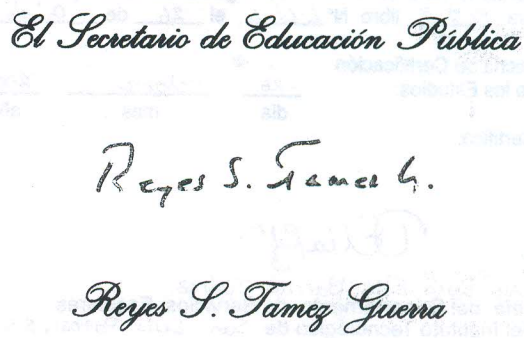 El Secretario de Educación Pública
Reyes S. Tamez G.
Reyes S. Tamez Guerra